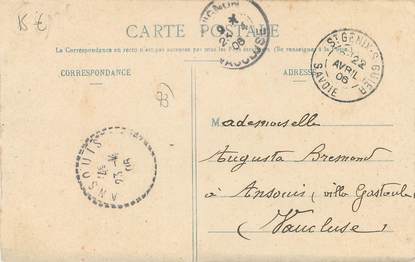 15 €
CARTE POSTALE
La Correspondance au recto n'est pas acceptée par tous les pays étrangers. (Se renseigner à la Poste.)
CORRESPONDANCE
ADRESSE
AVIGNON
VAUCLUSE
06
ST GENIX-S-GUIERS
22
AVRIL
06
SAVOIE
ANSOUIS
23
06
Mademoiselle
Augusta Bremond
à Ansouis (villa
Vaucluse